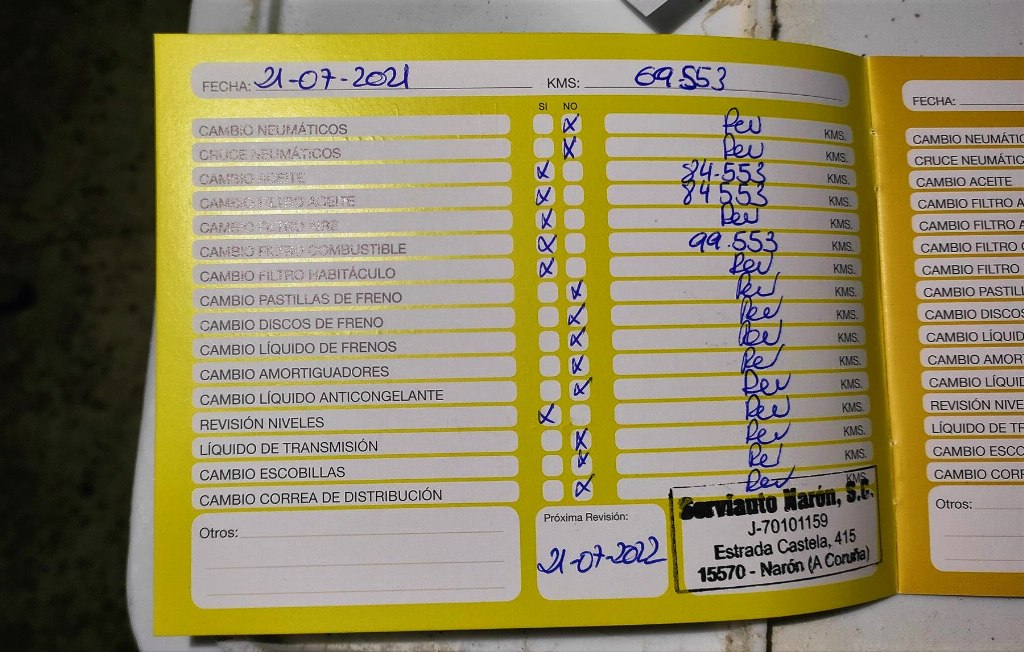 FECHA: 21-07-2021 KMS: 69.553
SI NO
CAMBIO NEUMÁTICOS X Rev KMS.
CRUCE NEUMÁTICOS X Rev KMS.
CAMBIO ACEITE X 84.553 KMS.
CAMBIO FILTRO ACEITE X 84.553 KMS.
CAMBIO FILTRO AIRE X Rev KMS.
CAMBIO FILTRO COMBUSTIBLE X 99.553 KMS.
CAMBIO FILTRO HABITÁCULO X Rev KMS.
CAMBIO PASTILLAS DE FRENO X Rev KMS.
CAMBIO DISCOS DE FRENO X Rev KMS.
CAMBIO LÍQUIDO DE FRENOS X Rev KMS.
CAMBIO AMORTIGUADORES X Rev KMS.
CAMBIO LÍQUIDO ANTICONGELANTE X Rev KMS.
REVISIÓN NIVELES X Rev KMS.
LÍQUIDO DE TRANSMISIÓN X Rev KMS.
CAMBIO ESCOBILLAS X Rev KMS.
CAMBIO CORREA DE DISTRIBUCIÓN X Rev KMS.
Otros:
Próxima Revisión:
21-07-2022
Serviauto Narón, S.C.
J-70101159
Estrada Castela, 415
15570 - Narón (A Coruña)
FECHA:
CAMBIO NEUMÁTIC
CRUCE NEUMÁTIC
CAMBIO ACEITE
CAMBIO FILTRO A
CAMBIO FILTRO A
CAMBIO FILTRO
CAMBIO FILTRO
CAMBIO PASTILL
CAMBIO DISCOS
CAMBIO LÍQUID
CAMBIO AMOR
CAMBIO LÍQUID
REVISIÓN NIVE
LÍQUIDO DE TR
CAMBIO ESCO
CAMBIO CORR
Otros: